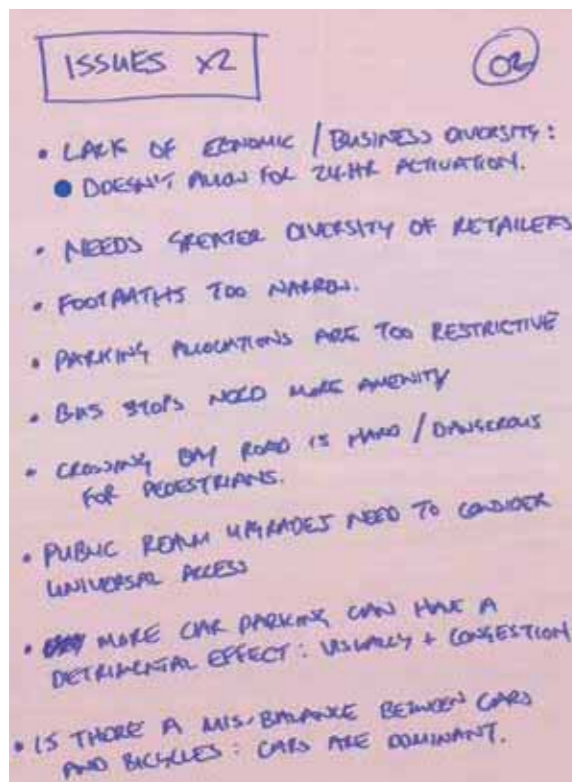 ISSUES x2
02
• LACK OF ECONOMIC / BUSINESS DIVERSITY:
• DOESN'T ALLOW FOR 24-HR ACTIVATION.
• NEEDS GREATER DIVERSITY OF RETAILERS
• FOOTPATHS TOO NARROW.
• PARKING ALLOCATIONS ARE TOO RESTRICTIVE
• BUS STOPS NEED MORE AMENITY
• CROSSING BAY ROAD IS HARD / DANGEROUS
FOR PEDESTRIANS.
• PUBLIC REALM UPGRADES NEED TO CONSIDER
UNIVERSAL ACCESS
• MORE CAR PARKING CAN HAVE A
DETRIMENTAL EFFECT: VISUALLY + CONGESTION
• IS THERE A MIS-BALANCE BETWEEN CARS
AND BICYCLES: CARS ARE DOMINANT.